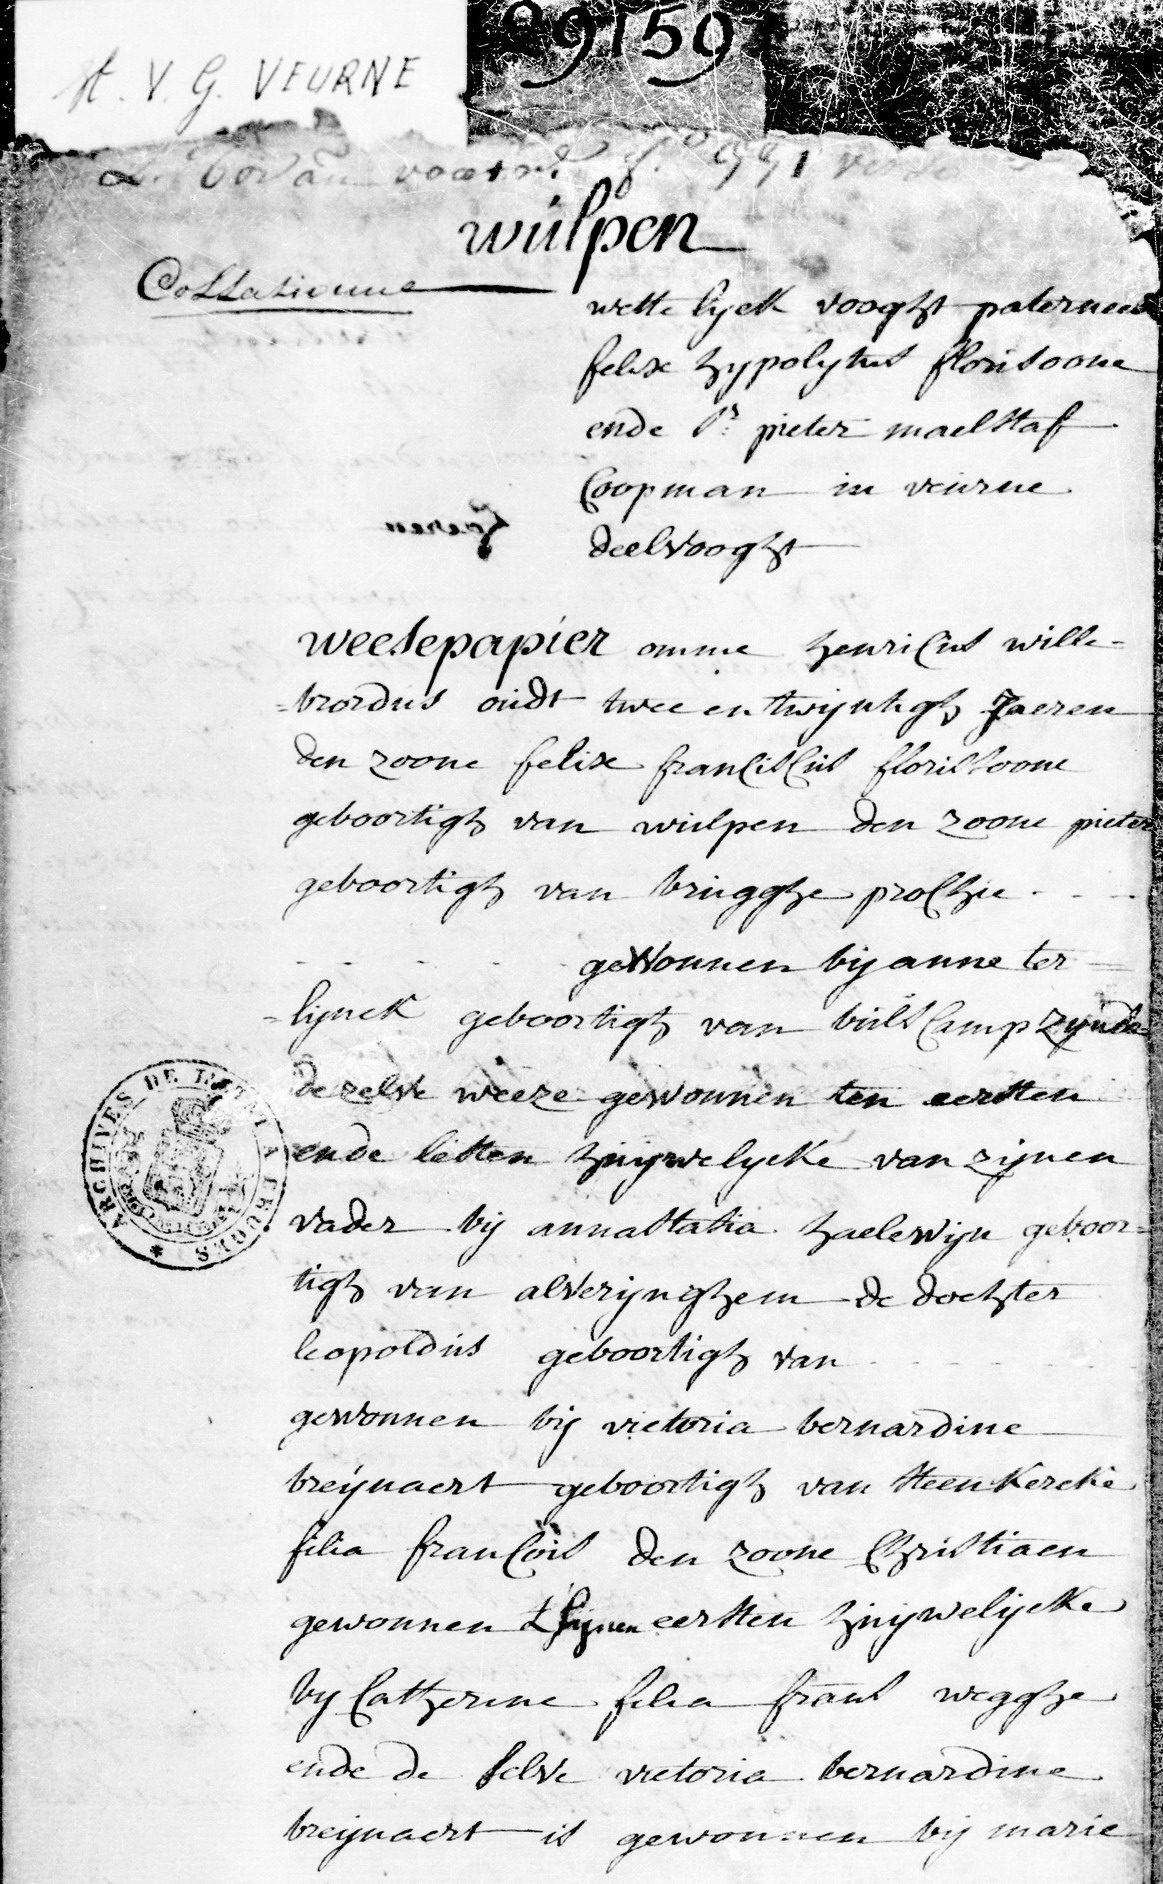 29159
A. V. G. VEURNE
wulpen
Collationne
wette lyck vooght paterneel
felix hypolytus florisoone
ende Sr pieter maelstaf
Coopman in veurne
deelvooght
weesepapier omme henricus wille-
-brordus oudt twee en twijntigh Jaeren
den zoone felix franciscus florissoone
geboortigh van wulpen den zoone pieter
geboortigh van brugghe prochie . . .
. . . . . gewonnen bij anne ter-
-lijnck geboortigh van bulscamp zynde
de zelve weeze gewonnen ten eersten
ende lesten huywelycke van zijnen
vader bij annastasia haelewijn geboor-
tigh van alverijnghem de dochter
leopoldus geboortigh van . . . . .
gewonnen bij victoria bernardine
breijnaert geboortigh van steenkercke
filia françois den zoone Christiaen
gewonnen t sijnen eersten huijwelijcke
by Catherine filia frans wegghe
ende de selve victoria bernardine
breijnaert is gewonnen bij marie
ARCHIVES DE L'ETAT A BRUGES